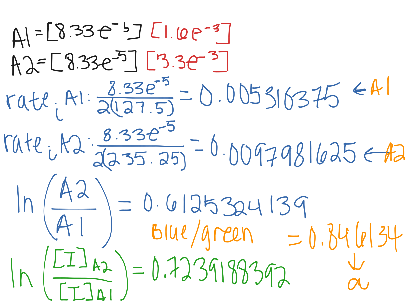 A1=[8.33e⁻⁵] [1.6e⁻³]
A2=[8.33e⁻⁵] [3.3e⁻³]
rate, A1: 8.33e⁻⁵/2(127.5) = 0.005310375 ← A1
rate, A2: 8.33e⁻⁵/2(235.25) = 0.0097981625 ← A2
ln(A2/A1) = 0.6125324139
Blue/green = 0.846134
↓
a
ln([I]A2/[I]A1) = 0.7239188392